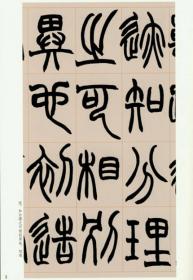 迹知分理
之可相別
異也初造